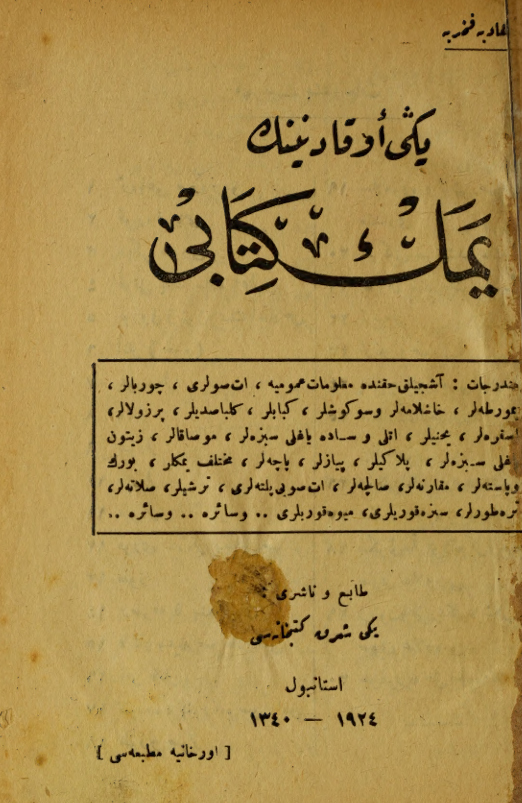 هادیه فخریه
یڭی أو قادنینڭ
یمك كتابی
مندرجات : آشجیلق حقنده معلومات عمومیه ، ات صولری ، چوربالر ،
یمورطه‌لر ، خاشلامه‌لر وسوكوشلر ، كبابلر ، كلباصدیلر ، پرزولالر،
اسقره‌لر ، یخنیلر ، اتلی و ساده یاغلی سبزه‌لر ، موصاقالر ، زیتون
یاغلی سبزه‌لر ، پلاكیلر ، پیازلر ، پاچه‌لر ، مختلف یمكلر ، بورك
وپاسته‌لر ، مقارنه‌لر، صالچه‌لر ، ات صویی پلته‌لری ، ترشیلر، صلاته‌لر،
تره‌طورلر، سبزه قوریلری، میوه قوریلری .. وسائره .. وسائره ..
طابع و ناشری :
یكی شرق كتبخانه‌سی
استانبول
١٩٢٤ — ١٣٤٠
[ اورخانیه مطبعه‌سی ]